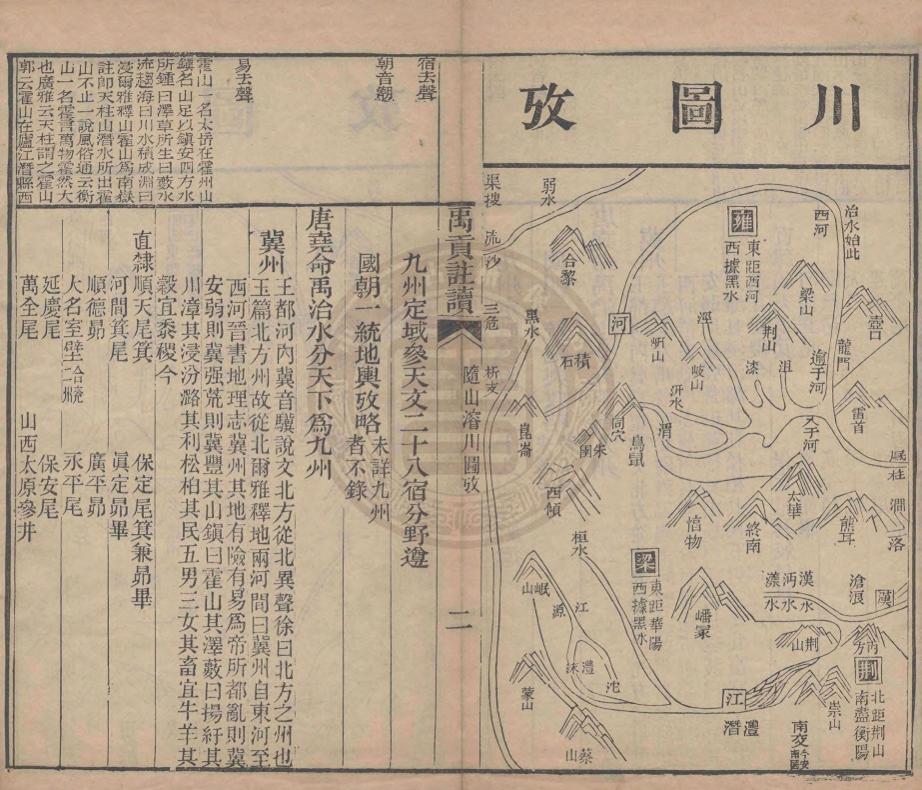 川圖攷
治水始此
西河
壺口
龍門
梁山
荆山
逾于河
雷首
厎柱
澗
洛
雍
東距西河
西據黑水
涇
漆
沮
入于河
岍山
岐山
汧水
渭
鳥鼠
同穴
朱圉
太華
終南
熊耳
惇物
弱水
合黎
河
積石
渠搜
流沙
三危
黑水
析支
崑崙
西傾
桓水
梁
東距華陽
西據黑水
嶓冢
漢水
沔水
漾水
滄浪
漢
荆山
內方
荆
北距荆山
南盡衡陽
崇山
南交
今安南國
岷山
江源
沬
灃
沱
蒙山
蔡山
江
灃
潛
禹貢註讀
隨山濬川圖攷
二
宿去聲
朝音觀
易去聲
霍山一名太岳在霍州山
鎮名山足以鎮安四方水
所鍾曰澤草所生曰藪水
流趨海曰川水積成淵曰
浸爾雅釋山霍山爲南嶽
註卽天柱山潛水所出霍
山不止一說風俗通云衡
山一名霍言萬物霍然大
也廣雅云天柱謂之霍山
郭云霍山在廬江潛縣西
九州定域參天文二十八宿分野遵
國朝一統地輿攷略未詳九州者不錄
唐堯命禹治水分天下爲九州
冀州王都河內冀音驥說文北方從北異聲徐曰北方之州也
玉篇北方州故從北爾雅釋地兩河間曰冀州自東河至
西河晉書地理志冀州其地有險有易爲帝所都亂則冀
安弱則冀强荒則冀豐其山鎮曰霍山其澤藪曰揚紆其
川漳其浸汾潞其利松柏其民五男三女其畜宜牛羊其
穀宜黍稷今
直隸順天尾箕 保定尾箕兼昴畢
河間箕尾 眞定昴畢
順德昴 廣平昴
大名室壁 永平尾
延慶尾 保安尾
萬全尾 山西太原參井